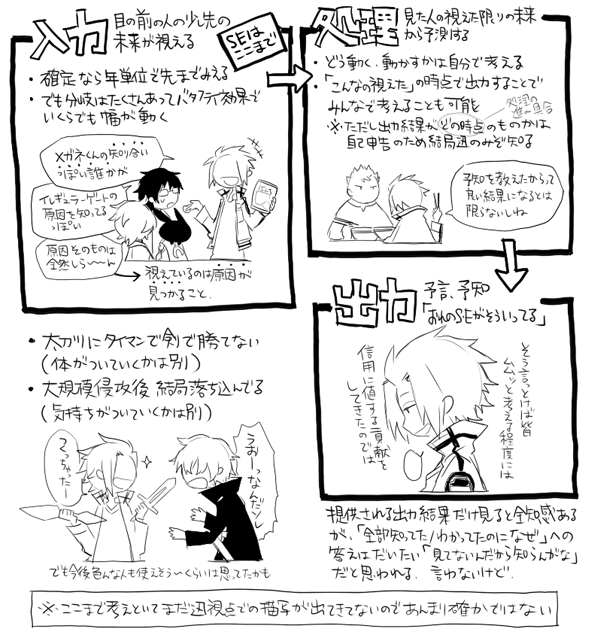 入力
目の前の人の少し先の
未来が視える
SEは
ここまで
・確定なら年単位で先までみえる
・でも分岐はたくさんあってバタフライ効果で
いくらでも幅が動く
メガネくんの知り合い
っぽい誰かが
イレギュラーゲートの
原因を知ってる
っぽい
原因そのものは
全然しら〜〜ん
→視えているのは原因が
見つかること.
処理
見た人の視えた限りの未来
から予測する
・どう動く、動かすかは自分で考える
・「こんなの視えた」の時点で出力することで
みんなで考えることも可能
処理の
進み具合
※ただし出力結果がどの時点のものかは
自己申告のため結局迅のみぞ知る
予知を教えたからって
良い結果になるとは
限らないしね
出力
予言、予知
「おれのSEがそういってる」
そう言っとけば皆
ムムッと考える程度には
信用に値する貢献を
してきたのでは
・太刀川にタイマンで剣で勝てない
(体がついていくかは別)
・大規模侵攻後 結局落ち込んでる
(気持ちがついていくかは別)
つくっちゃったー
うおーっなんだソレ
でも今後色んな人も使えそう〜くらいは思ってたかも
提供される出力結果だけ見ると全知感ある
が、「全部知ってた/わかってたのになぜ」への
答えはだいたい「見てないんだから知らんがな」
だと思われる. 言わないけど.
※ここまで考えといてまだ迅視点での描写が出てきてないのであんまり確かではない